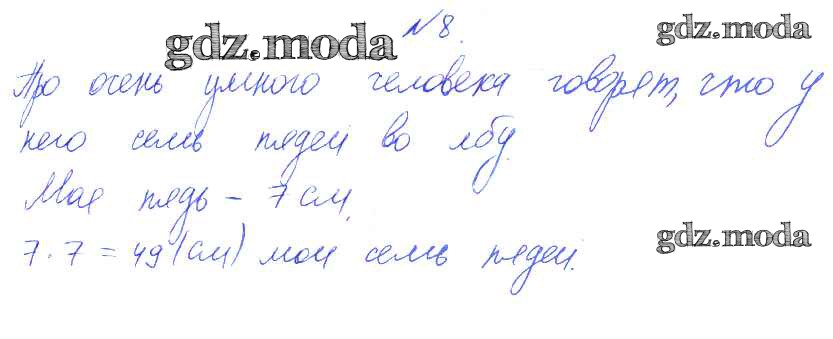 №8.
gdz.moda gdz.moda
Про очень умного человека говорят, что у
него семь пядей во лбу.
Моя пядь – 7 см.
7·7=49(см) мои семь пядей.
gdz.moda